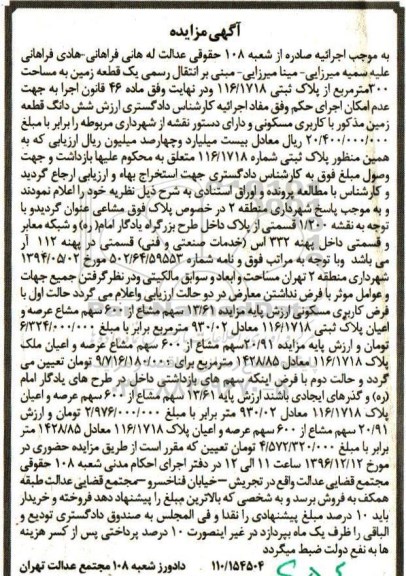 آگهی مزایده
به موجب اجرائیه صادره از شعبه ۱۰۸ حقوقی عدالت له هانی فراهانی-هادی فراهانی
علیه سمیه میرزایی- مینا میرزایی- مبنی بر انتقال رسمی یک قطعه زمین به مساحت
۳۰۰مترمربع از پلاک ثبتی ۱۱۶/۱۷۱۸ ودر نهایت وفق ماده ۴۶ قانون اجرا به جهت
عدم امکان اجرای حکم وفق مفاد اجرائیه کارشناس دادگستری ارزش شش دانگ قطعه
زمین مذکور با کاربری مسکونی و دارای دستور نقشه از شهرداری مربوطه را برابر با مبلغ
۲۰/۴۰۰/۰۰۰/۰۰۰ ریال معادل بیست میلیارد وچهارصد میلیون ریال ارزیابی که به
همین منظور پلاک ثبتی شماره ۱۱۶/۱۷۱۸ متعلق به محکوم علیها بازداشت و جهت
وصول مبلغ فوق به کارشناس دادگستری جهت استخراج بهاء و ارزیابی ارجاع گردید
و کارشناس با مطالعه پرونده و اوراق استنادی به شرح ذیل نظریه خود را اعلام نمودند
و به موجب پاسخ شهرداری منطقه ۲ در خصوص پلاک فوق مشاعی عنوان گردیدو با
توجه به نقشه ۱/۲۰۰۰ قسمتی از پلاک داخل طرح بزرگراه یادگار امام (ره) و شبکه معابر
و قسمتی داخل پهنه ۳۳۲ اس (خدمات صنعتی و فنی) قسمتی در پهنه ۱۱۲ آر
می باشد وبا توجه به مراتب فوق و نامه شماره ۵۰۲/۶۴/۵۹۵۵۳ مورخ ۱۳۹۴/۰۵/۰۲
شهرداری منطقه ۲ تهران مساحت و ابعاد و سوابق مالکیتی ودر نظر گرفتن جمیع جهات
و عوامل موثر با فرض نداشتن معارض در دو حالت ارزیابی واعلام می گردد حالت اول با
فرض کاربری مسکونی ارزش پایه مزایده ۱۳/۶۱ سهم مشاع از ۶۰۰ سهم مشاع عرصه و
اعیان پلاک ثبتی ۱۱۶/۱۷۱۸ معادل ۹۳۰/۰۲ مترمربع برابر با مبلغ ۶/۳۲۴/۰۰۰/۰۰۰
تومان و ارزش پایه مزایده ۲۰/۹۱ سهم مشاع از ۶۰۰ سهم مشاع عرصه و اعیان ملک
پلاک ۱۱۶/۱۷۱۸ معادل ۱۴۲۸/۸۵ مترمربع برای ۹/۷۱۶/۱۸۰/۰۰۰ تومان تعیین می
گردد و حالت دوم با فرض اینکه سهم های بازداشتی داخل در طرح های یادگار امام
(ره) و گذرهای ایجادی باشند ارزش پایه ۱۳/۶۱ سهم مشاع از ۶۰۰ سهم عرصه و اعیان
پلاک ۱۱۶/۱۷۱۸ معادل ۹۳۰/۰۲ متر برابر با مبلغ ۲/۹۷۶/۰۰۰/۰۰۰ تومان و ارزش
۲۰/۹۱ سهم مشاع از ۶۰۰ سهم عرصه و اعیان پلاک ۱۱۶/۱۷۱۸ معادل ۱۴۲۸/۸۵ متر
برابر با مبلغ ۴/۵۷۲/۳۲۰/۰۰۰ تومان تعیین که مقرر است از طریق مزایده حضوری در
مورخ ۱۳۹۶/۱۲/۱۲ ساعت ۱۱ الی ۱۲ در دفتر اجرای احکام مدنی شعبه ۱۰۸ حقوقی
مجتمع قضایی عدالت واقع در تجریش –خیابان فناخسرو –مجتمع قضایی عدالت طبقه
همکف به فروش برسد و به شخصی که بالاترین مبلغ را پیشنهاد دهد فروخته و خریدار
باید ۱۰ درصد مبلغ پیشنهادی را نقدا و فی المجلس به صندوق دادگستری تودیع و
الباقی را ظرف یک ماه بپردازد در غیر اینصورت ۱۰ درصد پرداختی پس از کسر هزینه
ها به نفع دولت ضبط میگردد
۱۱۰/۱۵۴۵۰۴ دادورز شعبه ۱۰۸ مجتمع عدالت تهران